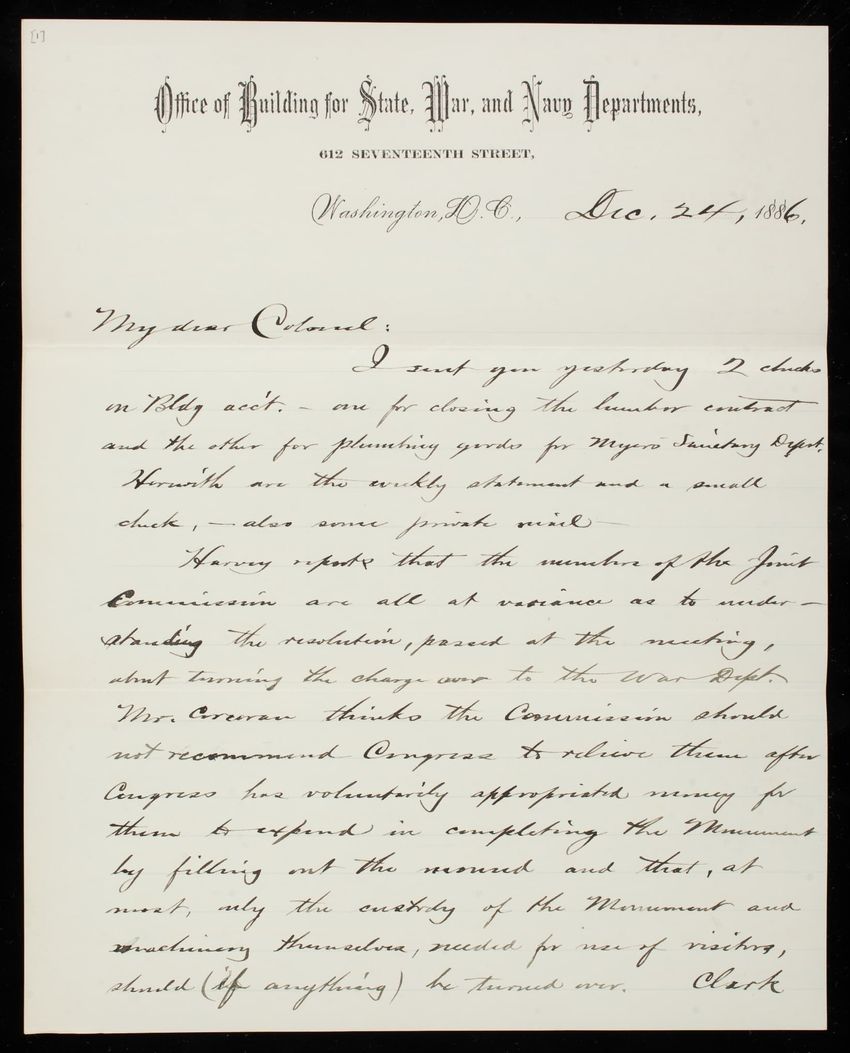 [1]
Office of Building for State, War, and Navy Departments,
612 SEVENTEENTH STREET,
Washington, D.C., Dec. 24, 1886.
My dear Colonel:
I sent you yesterday 2 checks
on Bldg acc't. - one for closing the lumber contract
and the other for plumbing goods for Myers Sanitary Depot.
Herwith are the weekly statement and a small
check, - also some private mail -
Harvey reports that the members of the Joint
Commission are all at variance as to under-
standing the resolution, passed at the meeting,
about turning the charge over to the War Dept.
Mr. Corcoran thinks the Commission should
not recommend Congress to relieve them after
Congress has voluntarily appropriated money for
them to expend in completing the Monument
by filling out the mound and that, at
most, only the custody of the Monument and
machinery themselves, needed for use of visitors,
should (if anything) be turned over. Clark